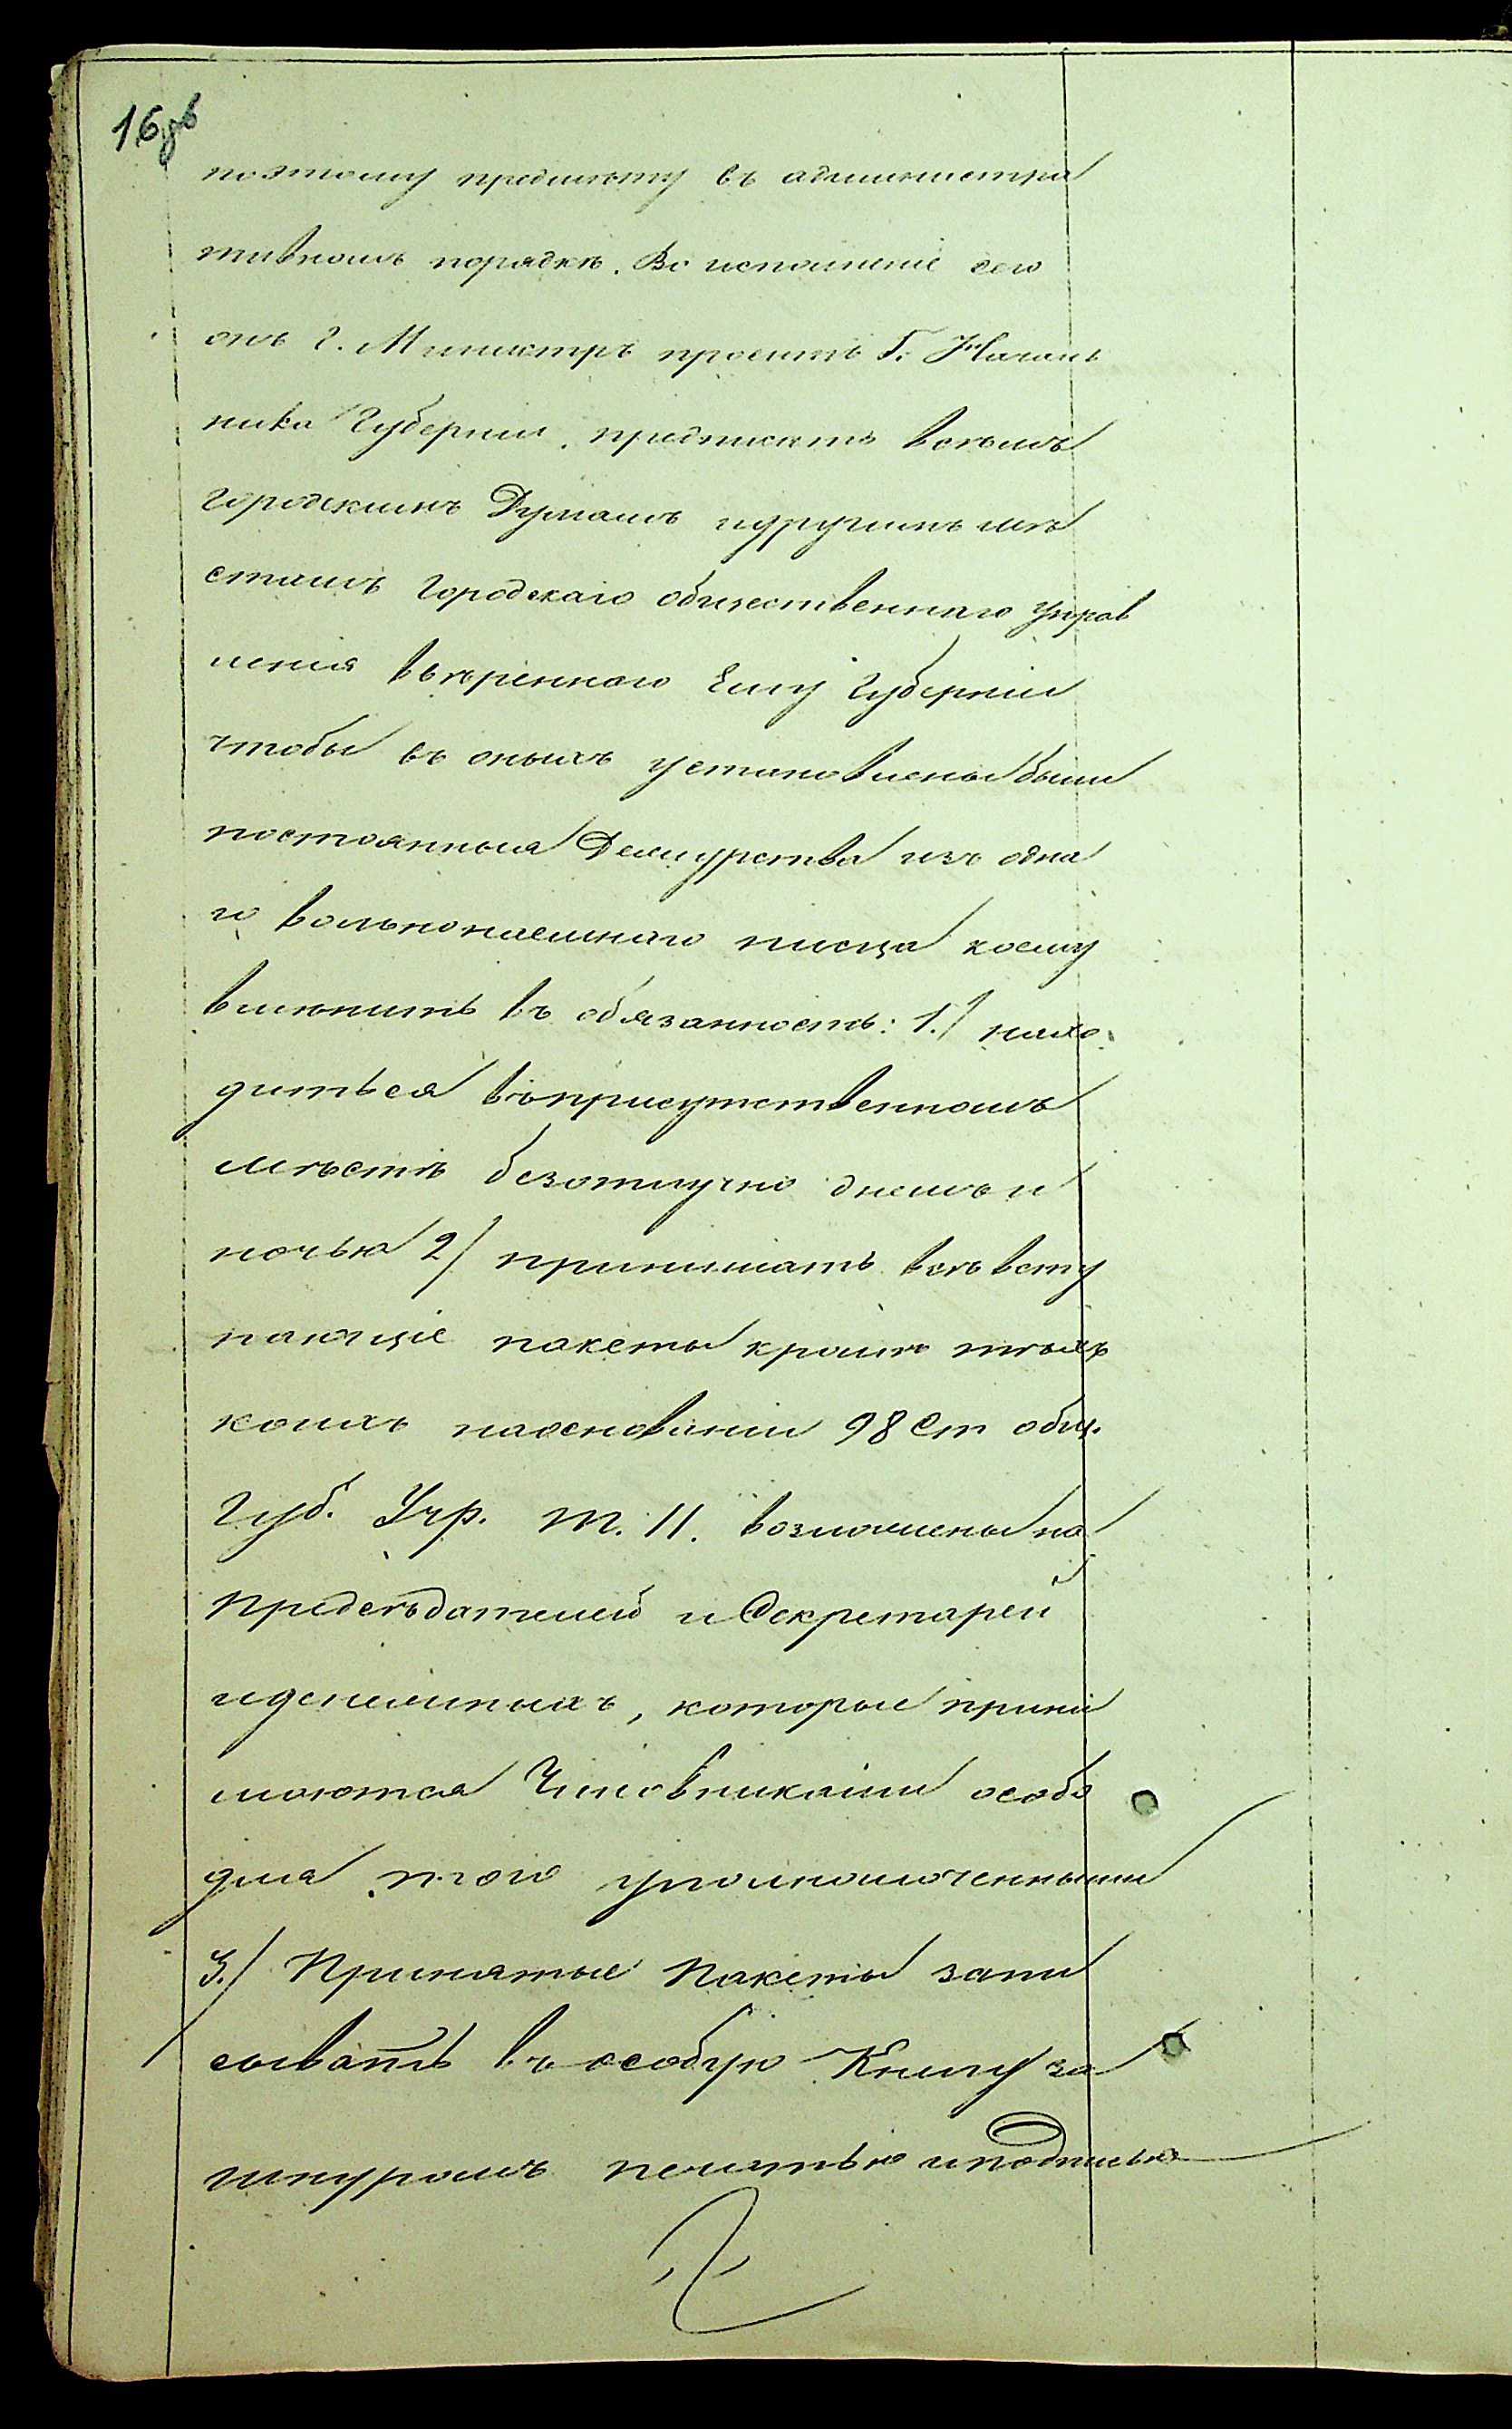 16об
поэтому предмету въ администра
тивномъ порядкѣ. Во исполненіе сего
онъ Г. Министръ проситъ Г. Началь
ника Губерніи предписать всѣмъ
Городскимъ Думамъ и другимъ мѣ
стамъ Городскаго общественнаго управ
ленія ввѣреннаго Ему Губерніи
чтобы въ оныхъ установлены были
постоянныя Дежурства изъ одна
го вольнонаемнаго писца коему
вмѣнить въ обязанность: 1./ нахо
диться въ присутственномъ
мѣстѣ безотлучно днемъ и
ночью 2/ принимать всѣ всту
пающіе пакеты кромѣ тѣхъ
коихъ на основаніи 98 Ст общ.
Губ. Учр. т. II. возложены на
предсѣдателей и Секретарей
и денежныхъ, которые прини
маются Чиновниками особо
для того уполномоченными
3./ Принятые Пакеты запи
сывать въ особую Книгу за
шнуромъ печатью и подписью